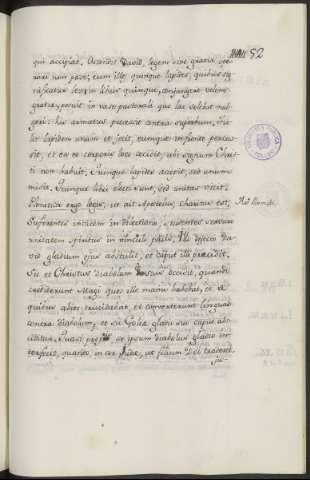 52
qui accipiat. Ostendit David, legem sine gratia
nari non posse; cum ille quinque lapides, quibus
nificatur lex in libris quinque, conjungere volens
gratiæ, posuit in vase pastorali quo lac solebat
geri: his armatus processit contra superbum,
lit lapidem unum et jecit, eumque in fronte percus-
sit, et en eo corporis loco cecidit, ubi signum Chris-
ti non habuit. Quinque lapides accepit, sed unum
misit. Quinque libri electi sunt, sed unitas vicit.
Plenitudo ergo legis, ut ait Apostolus, charitas est;
Ad Roma.
Sufferentes invicem in dilectione, studentes servare
unitatem spiritus in vinculo pacis. Illi dejecto Da-
vid gladium ejus abstulit, et caput illi præcidit.
Sic et Christus diabolum suis occidit, quando
crediderunt Magi quos ille manu habebat, et a
quibus alios trucidabat, et convertebant linguas
contra diabolum, et sic Goliæ gladio suo caput abs-
cinditur. et ipsum diabolus gladio in-
terfecit, quando in cor Judæ, ut filium Dei traderet